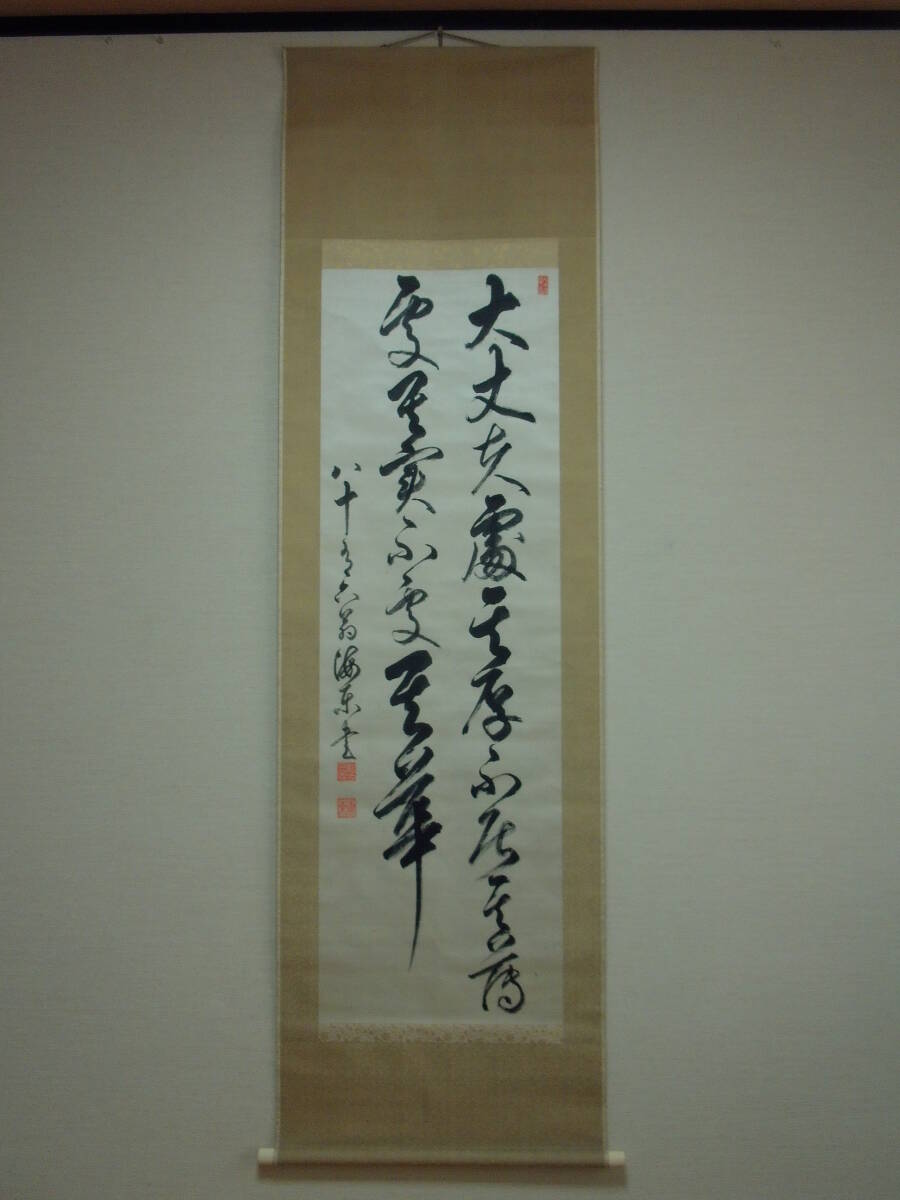 大丈夫處其厚不居其薄
處其實不處其華
八十有六翁海東書